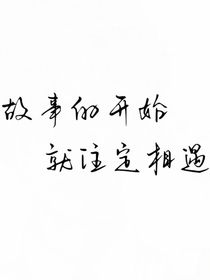 故事的开始
就注定相遇